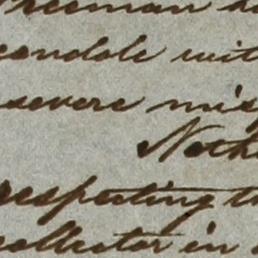 reeman
condole wit
severe mis
Noth
respecting t
collector in